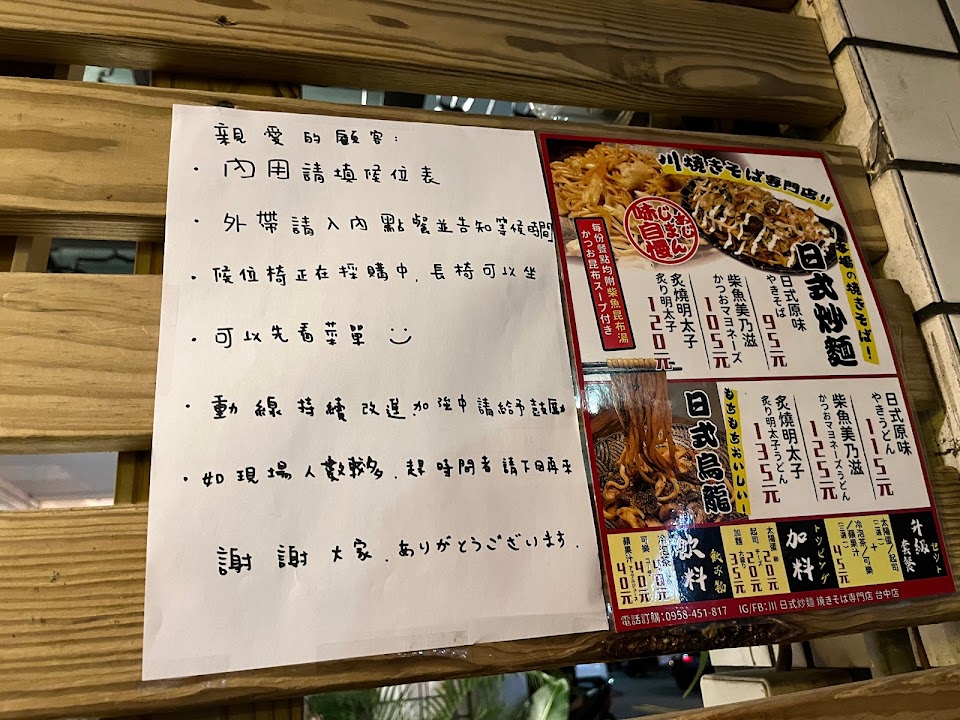 親愛的顧客:
· 內用請填候位表
· 外帶請入內點餐並告知等候時間
· 候位椅正在採購中,長椅可以坐
· 可以先看菜單
· 動線持續改進加強中請給予鼓勵
· 如現場人數較多,趕時間者請下回再來
謝謝大家.ありがとうございます.
川焼きそば専門店!!
味自慢
あじじまん
本場の焼きそば!
日式炒麵
每份餐點均附柴魚昆布湯
かつお昆布スープ付き
日式原味
やきそば
95元
柴魚美乃滋
かつおマヨネーズ
105元
炙燒明太子
炙り明太子
120元
もちもちおいしい!
日式烏龍
日式原味
やきうどん
115元
柴魚美乃滋
かつおマヨネーズうどん
125元
炙燒明太子
炙り明太子うどん
135元
升級套餐
セット
太陽蛋/起司
(二選一)
+
冷泡茶/可樂/蘋果汁
(三選一)
45元
加料
トッピング
太陽蛋 20元
起司 20元
加麵 35元
飲料
飲み物
冷泡茶 40元
可樂 40元
蘋果汁 40元
電話訂購:0958-451-817 IG/FB:川 日式炒麵 焼きそば専門店 台中店